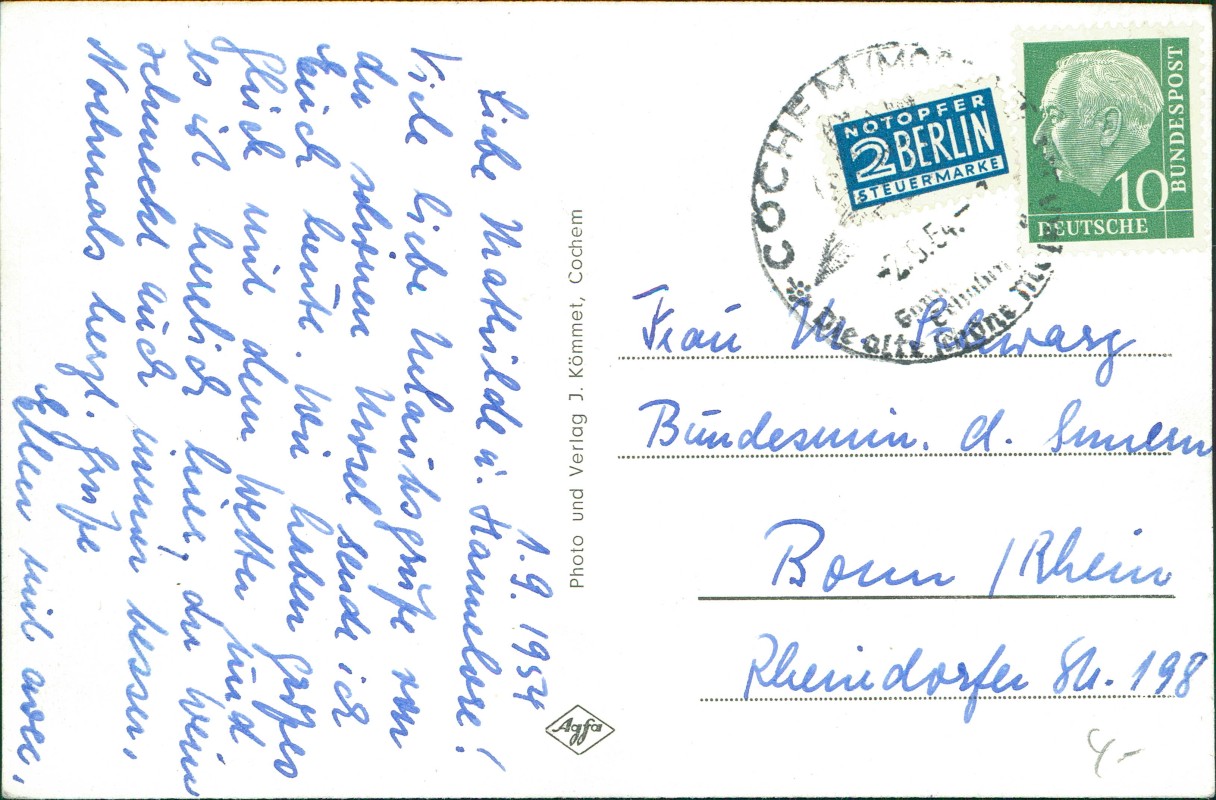 1. 9. 1954
Liebe Mathilde u. Hannelore!
Viele liebe Urlaubsgrüße von
der schönen Mosel sende ich
Euch heute. Wir haben großes
Glück mit dem Wetter und
es ist herrlich hier, der Wein
schmeckt auch immer besser.
Nochmals herzl. Grüße
Ellen
Photo und Verlag J. Kömmet, Cochem
Agfa
COCHEM (MOS
-2.9.54.-
Die alte
NOTOPFER
2 BERLIN
STEUERMARKE
BUNDESPOST
10
DEUTSCHE
Frau Schwarz
Bundesmin. d. Innern
Bonn / Rhein
Rheindorfer Str. 198
4,-